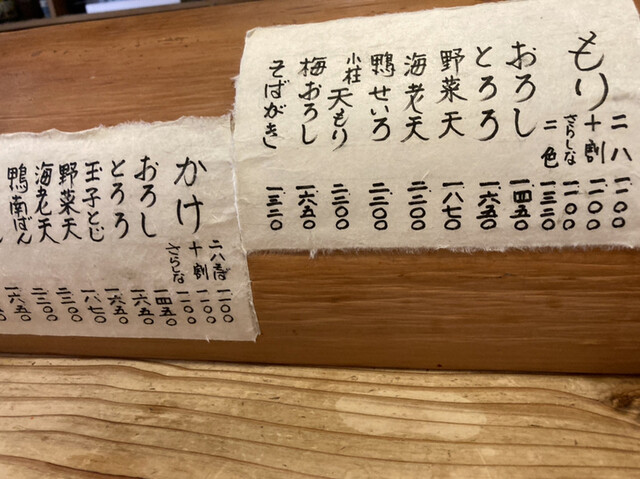 もり 二八 一一〇〇
十割 一一〇〇
さらしな 一一〇〇
二色 一三二〇
おろし 一四五〇
とろろ 一六五〇
野菜天 一八七〇
海老天 二二〇〇
鴨せいろ 二二〇〇
小柱天もり 二二〇〇
梅おろし 一六五〇
そばがき 一三二〇
かけ 二八 一一〇〇
十割 一一〇〇
さらしな 一一〇〇
おろし 一四五〇
とろろ 一六五〇
玉子とじ 一六五〇
野菜天 一八七〇
海老天 二二〇〇
鴨南ばん 二二〇〇
一六五〇